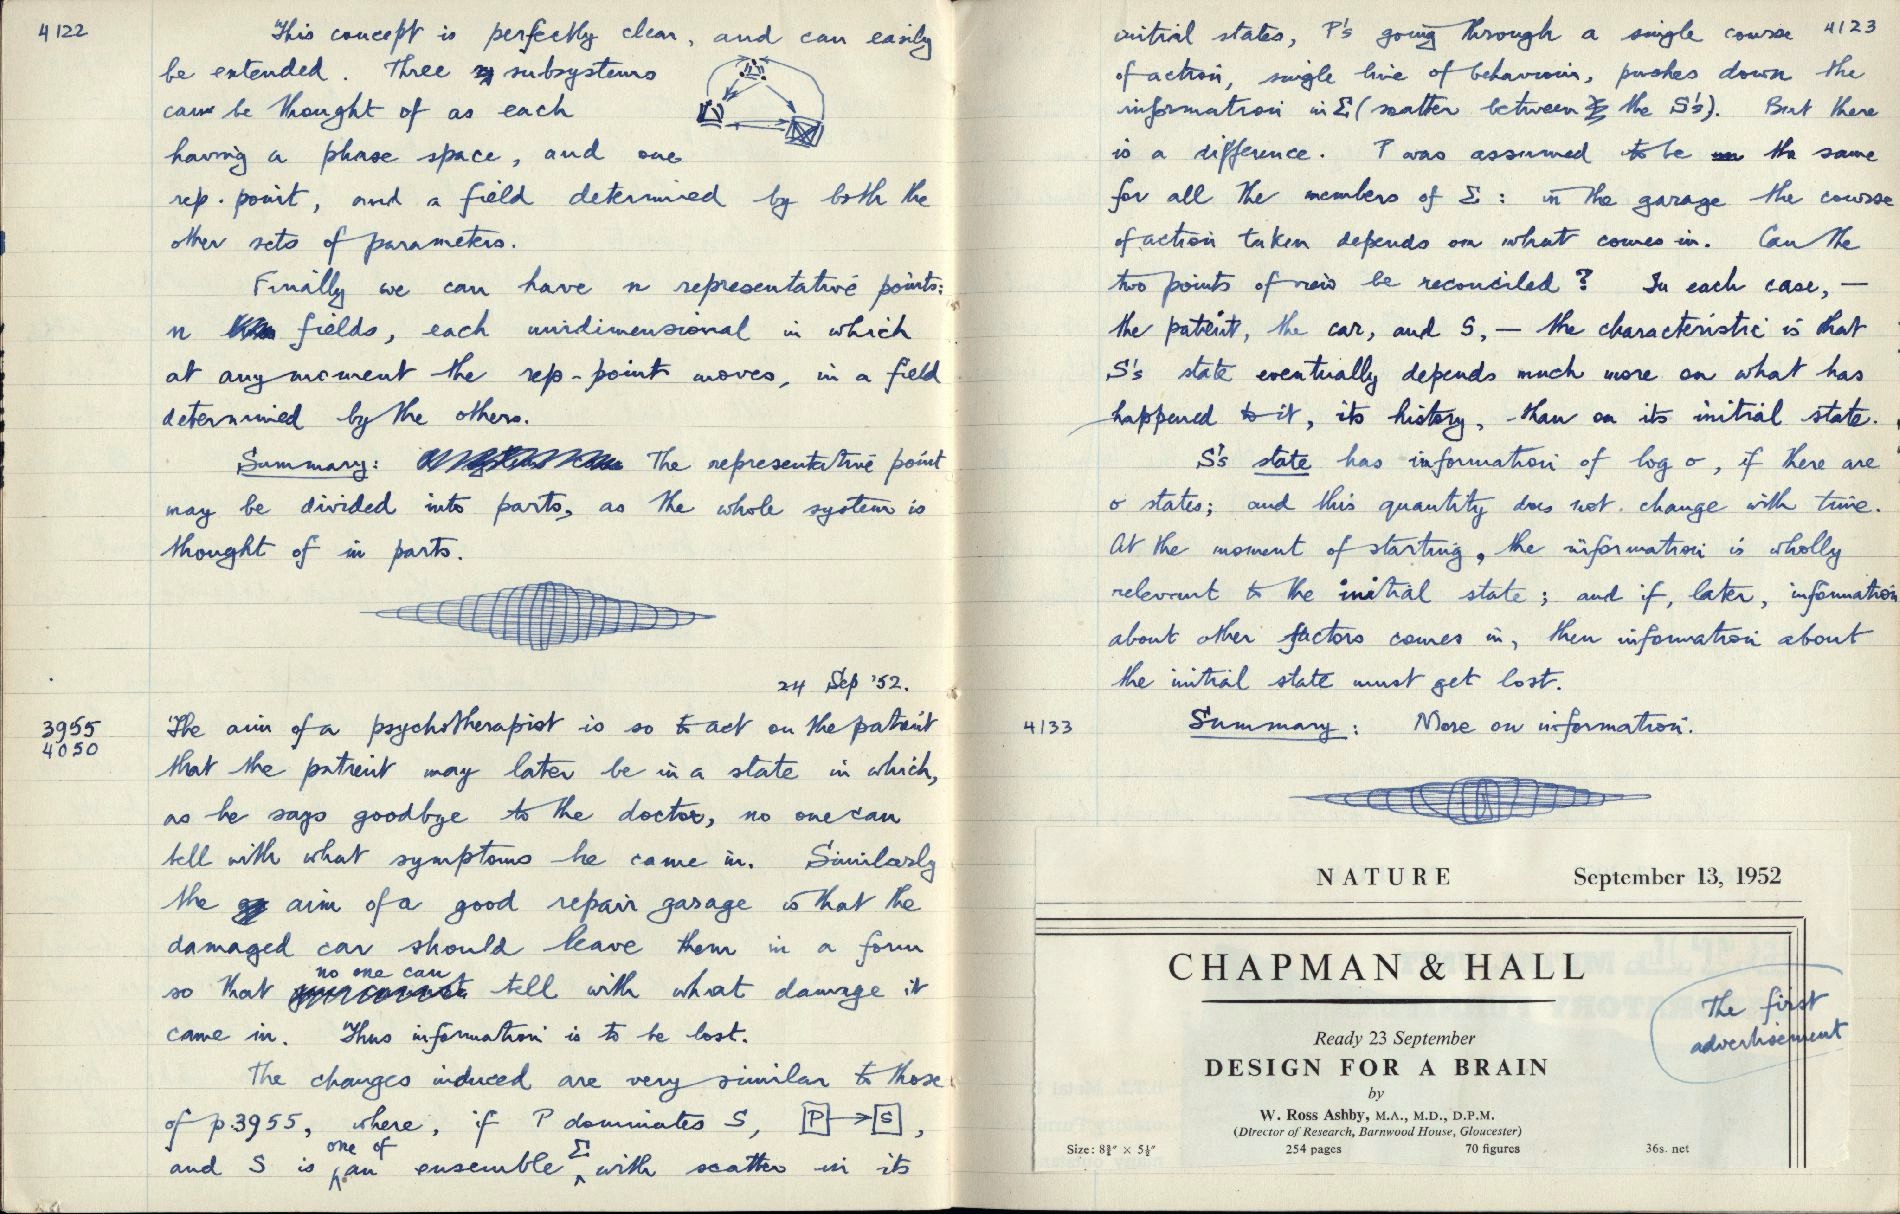 4122
This concept is perfectly clear, and can easily
be extended. Three subsystems
can be thought of as each
having a phase space, and one
rep. point, and a field determined by both the
other sets of parameters.
Finally we can have n representative points:
n fields, each unidimensional in which
at any moment the rep-point moves, in a field
determined by the others.
Summary: The representative point
may be divided into parts, as the whole system is
thought of in parts.
24 Sep '52.
3955
4050
The aim of a psychotherapist is so to act on the patient
that the patient may later be in a state in which,
as he says goodbye to the doctor, no one can
tell with what symptoms he came in. Similarly
the aim of a good repair garage is that the
damaged car should leave them in a form
so that no one can tell with what damage it
came in. Thus information is to be lost.
The changes induced are very similar to those
of p.3955, where, if P dominates S, P → S,
and S is one of an ensemble Σ with scatter in its
4123
initial states, P's going through a single course
of action, single line of behaviour, pushes down the
information in Σ (scatter between the S's). But there
is a difference. P was assumed to be the same
for all the members of Σ : in the garage the course
of action taken depends on what comes in. Can the
two points of view be reconciled? In each case, —
the patient, the car, and S, — the characteristic is that
S's state eventually depends much more on what has
happened to it, its history, than on its initial state.
S's state has information of log σ, if there are
σ states; and this quantity does not change with time.
At the moment of starting, the information is wholly
relevant to the initial state; and if, later, information
about other factors comes in, then information about
the initial state must get lost.
4133
Summary: More on information.
NATURE September 13, 1952
CHAPMAN & HALL
Ready 23 September
DESIGN FOR A BRAIN
by
W. Ross Ashby, M.A., M.D., D.P.M.
(Director of Research, Barnwood House, Gloucester)
Size: 8¾" × 5½" 254 pages 70 figures 36s. net
The first
advertisement